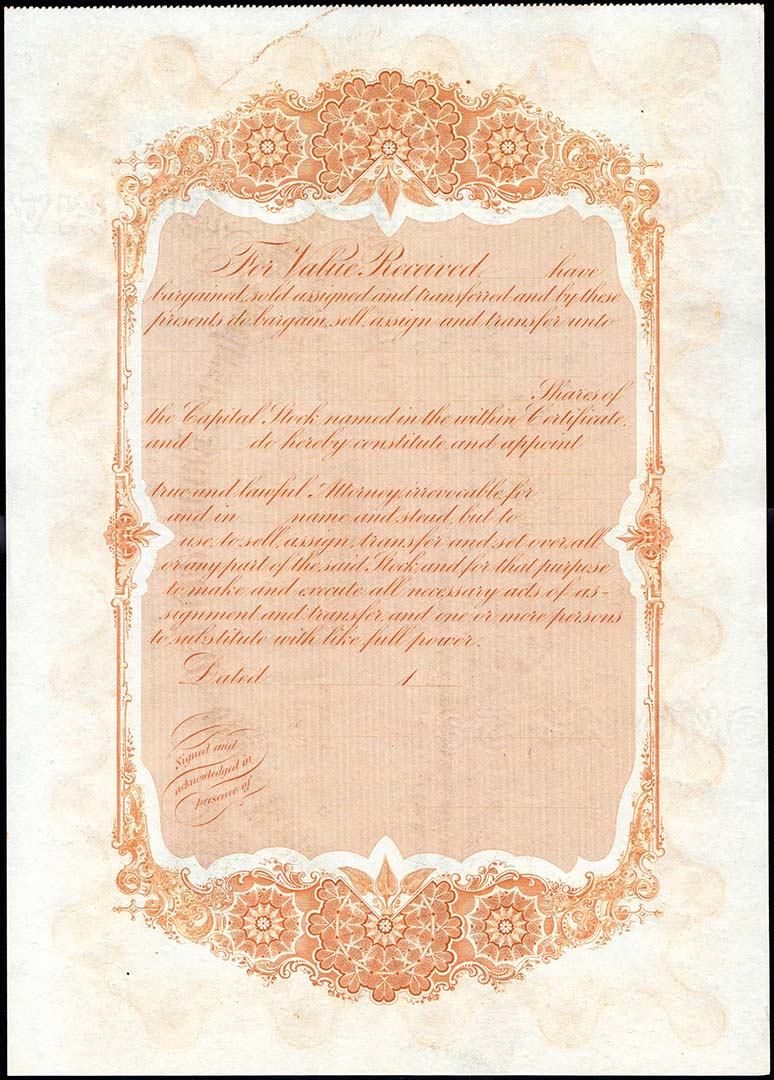 For Value Received, have
bargained, sold assigned and transferred and by these
presents do bargain, sell, assign and transfer unto
Shares of
the Capital Stock named in the within Certificate,
and do hereby constitute and appoint
true and lawful Attorney, irrevocable, for
and in name and stead, but to
use, to sell, assign, transfer and set over, all
or any part of the said Stock, and for that purpose
to make and execute all necessary acts of as-
signment and transfer, and one or more persons
to substitute with like full power.
Dated 1
Signed and
acknowledged in
presence of